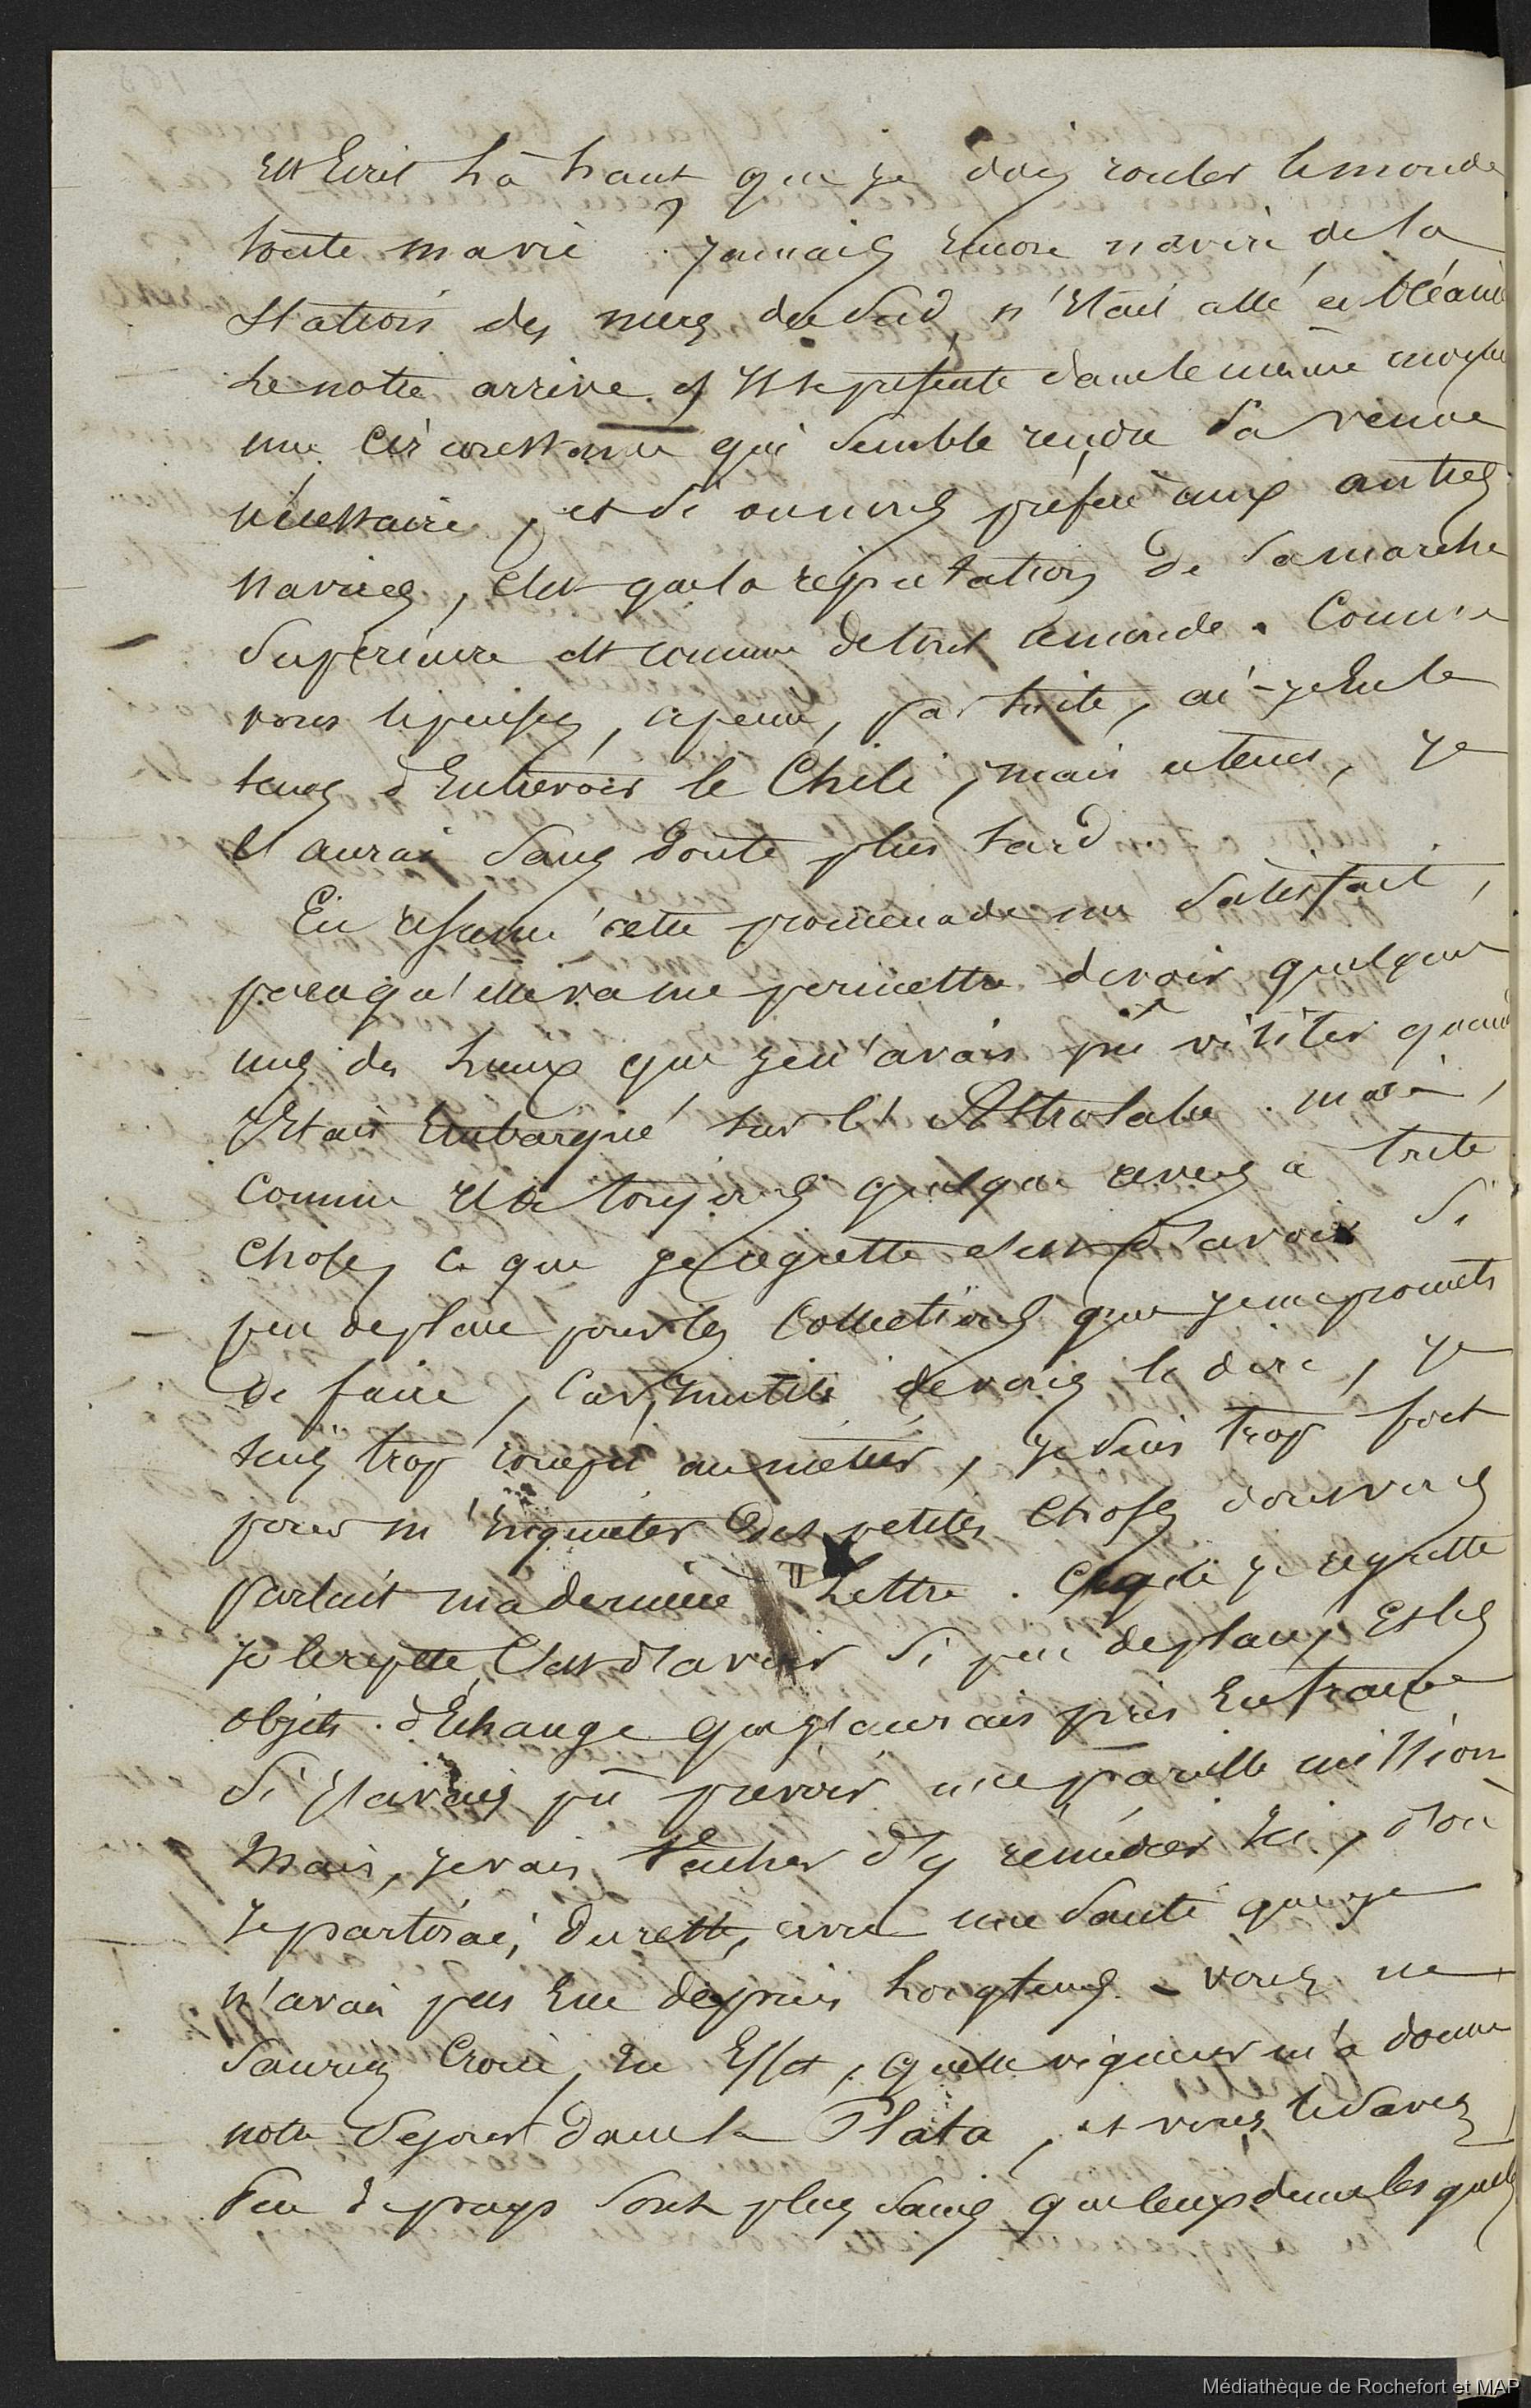 est Ecrit là haut que je dois rouler le monde
toute ma vie ? jamais encore navire de la
Station des mers du Sud n'était allé en Océanie
le notre arrive et il se présente dans le même
une circonstance qui semble rendre sa venue
nécessaire, et si on nous préfère aux autres
navires, c'est que la réputation de sa marche
Supérieure est connue de tout le monde. Comme
vous le pensez, à peine, par suite, ai-je Eu le
tems d'Entrevoir le Chili ; mais attens, je
l'aurai sans doute plus tard.
En résumé cette promenade me satisfait,
parcequ'elle va me permettre de voir quelques
uns des lieux que je n'avais pu visiter quand
J'Etais Embarqué sur l'Astrolabe. mais,
Comme il a toujours quelque revers a toute
Chose, ce que je regrette c'est d'avoir Si
peu de place pour les Collections que je me promets
De faire, Car, Inutile de vous le dire, je
suis trop rompu au métier, je suis trop fort
pour m'inquiéter des petites Choses dont vous
parlait ma dernière Lettre. Ce que je regrette
je le repète, C'est d'avoir Si peu de place, Et les
objets d'Echange que j'aurais pris En france
Si j'avais pû prévoir une pareille mission
Mais, je vais tacher d'y remédier Ici, d'où
Je partirai, du reste, avec une santé que je
n'avais pas Eue depuis longtems. vous ne
Sauriez Croire, En Effet, quelle vigueur m'a donné
notre Séjour dans la Plata, et vous le savez
Peu de pays sont plus sains que ceux dans les quels
Médiathèque de Rochefort et MAP